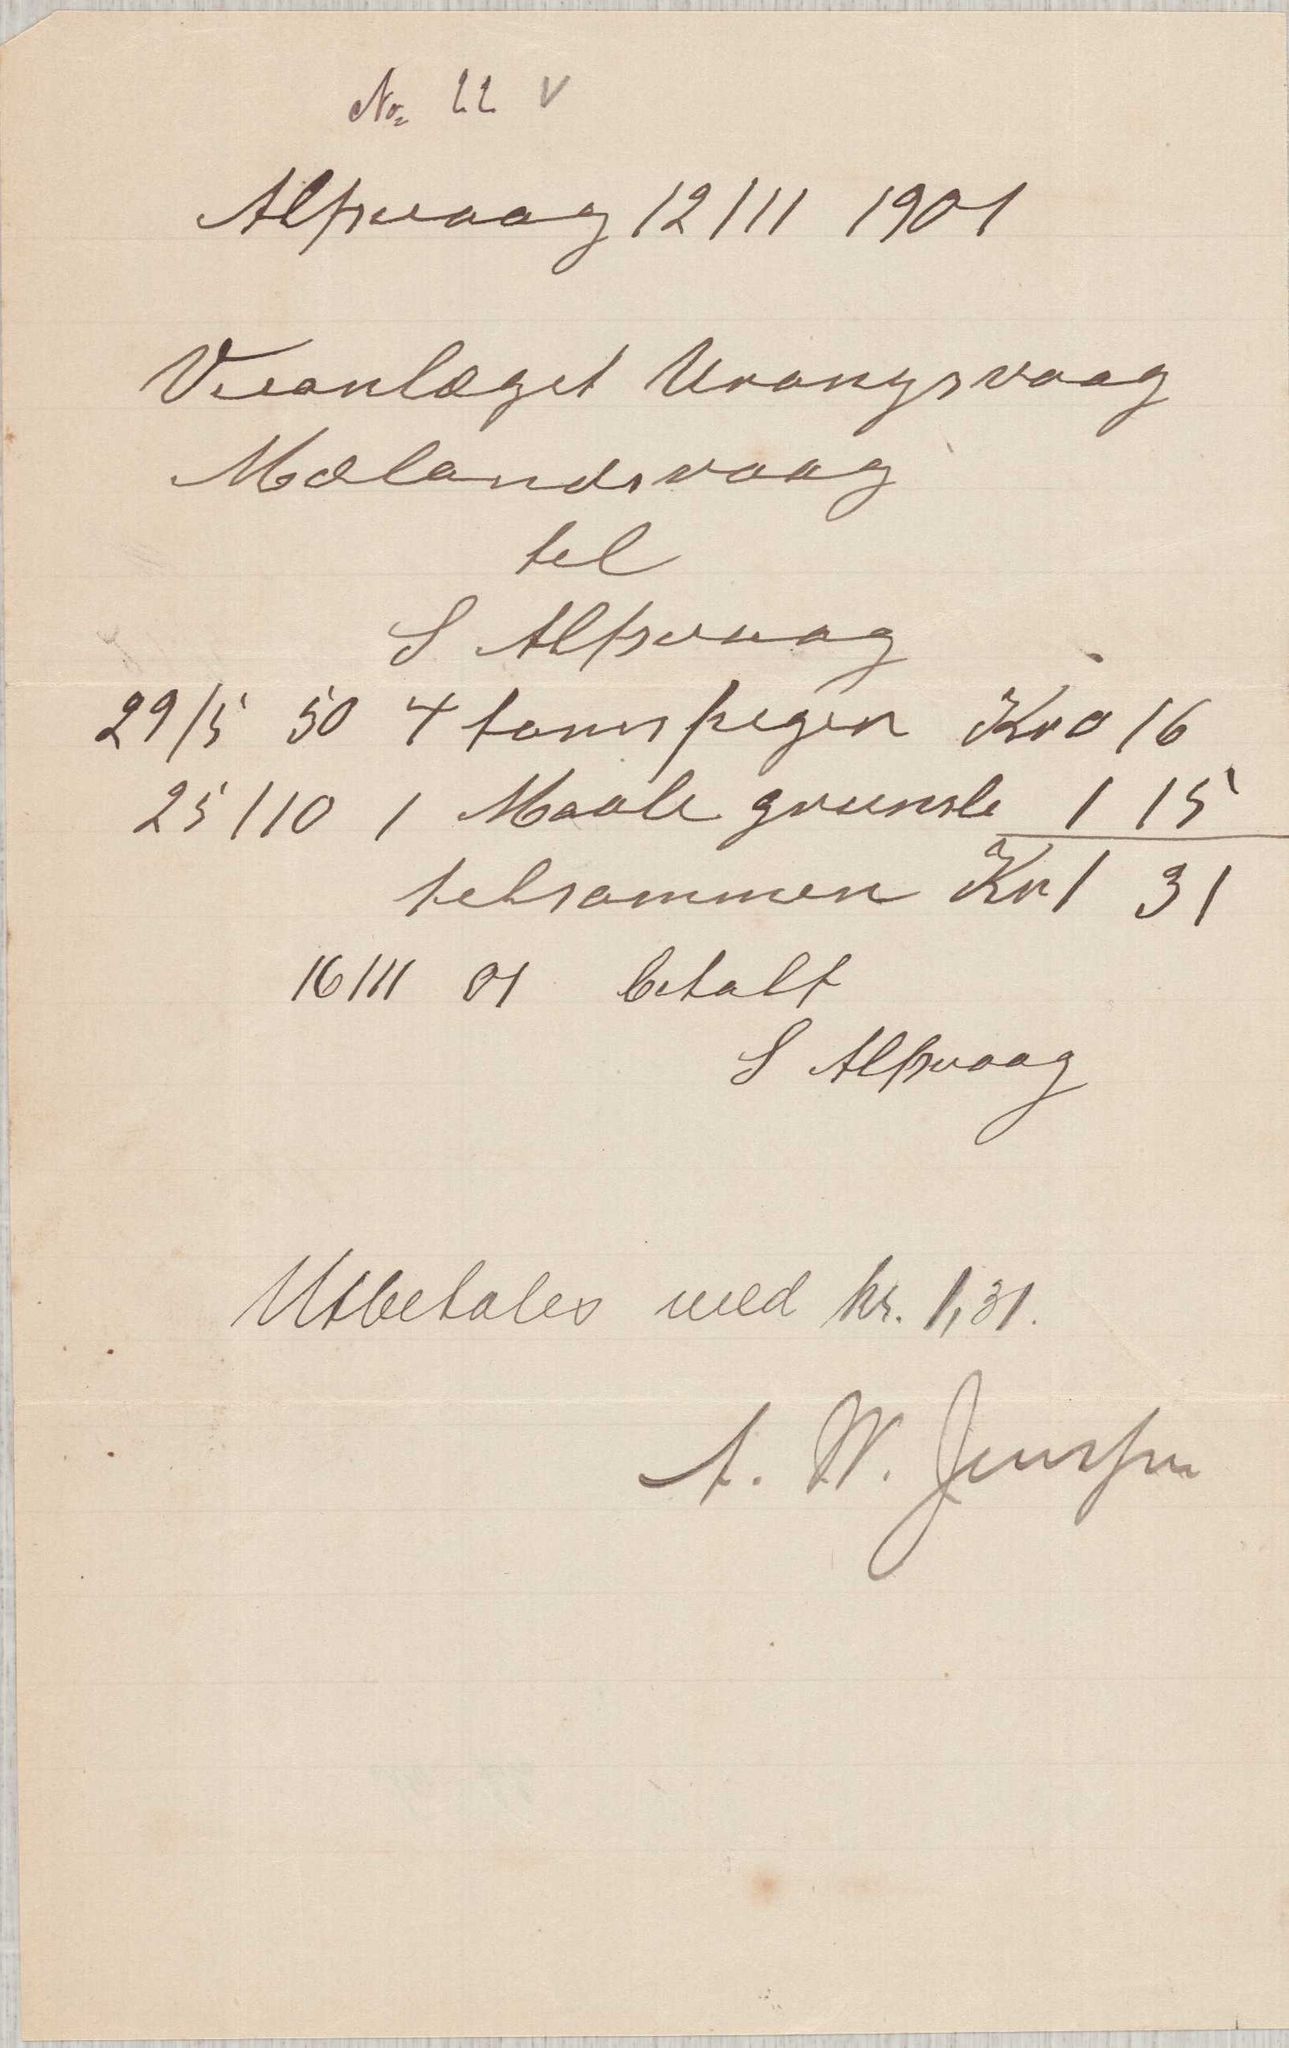 No. 22 V
Alfsvaag 12/11 1901
Veianlæget Urangsvaag
Mælandsvaag
tel
S Alfsvaag
29/5 50 4 toms spiger Kr 0 16
25/10 1 Maale 1 15
telsammen Kr 1 31
16/11 01 betalt
S Alfsvaag
Utbetales med kr. 1,31.
A. W. Jensen